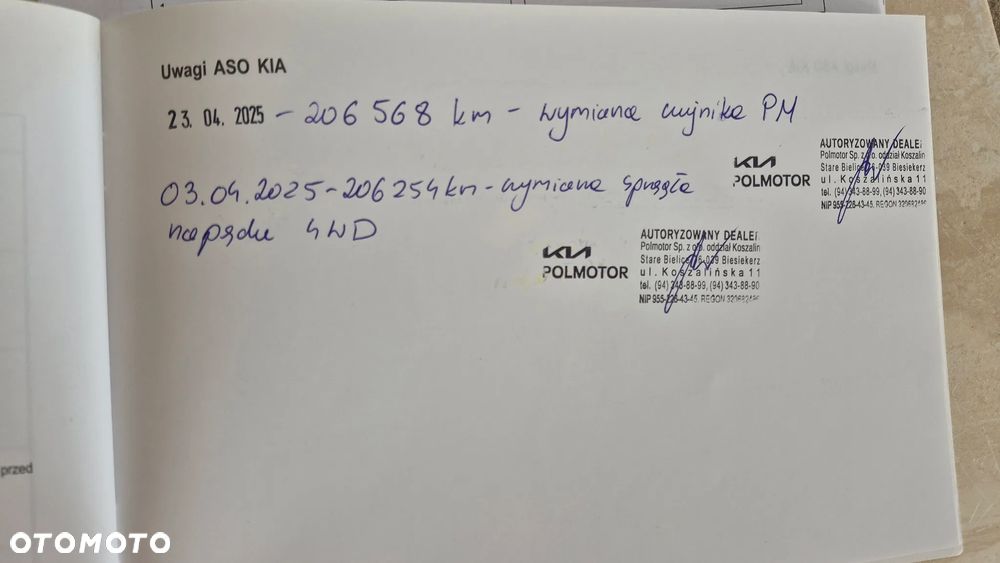 Uwagi ASO KIA
23. 04. 2025 - 206 568 km - wymiana czujnika PM
KIA
POLMOTOR
AUTORYZOWANY DEALER
Polmotor Sp. z o.o. oddział Koszalin
Stare Bielice 76-039 Biesiekierz
ul. Koszalińska 11
tel. (94) 343-88-99, (94) 343-88-90
NIP 955-226-43-45, REGON
03.04.2025 - 206254km - wymiana sprzęgła
napędu 4WD
KIA
POLMOTOR
AUTORYZOWANY DEALER
Polmotor Sp. z o.o. oddział Koszalin
Stare Bielice 76-039 Biesiekierz
ul. Koszalińska 11
tel. (94) 343-88-99, (94) 343-88-90
NIP 955-226-43-45, REGON
przed
OTOMOTO